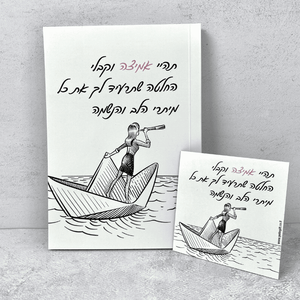 תהיי אמיצה וקבלי
החלטה שתרעיד לך את כל
מיתרי הלב והנשמה
תהיי אמיצה וקבלי
החלטה שתרעיד לך את כל
מיתרי הלב והנשמה